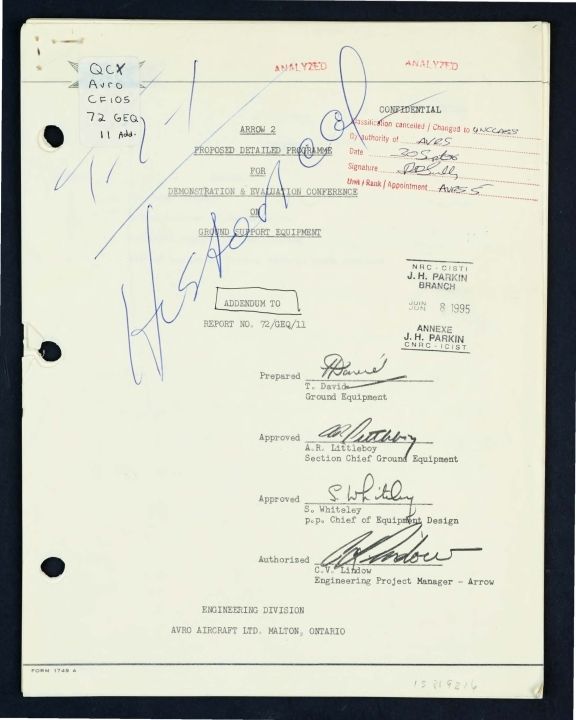 QCX
Avro
CF105
72 GEQ
11 Add.
ANALYZED
ANALYZED
Historical
CONFIDENTIAL
Classification cancelled / Changed to UNCLASS
By authority of AVRS
Date
Signature
Unit / Rank / Appointment AVRS 5
ARROW 2
PROPOSED DETAILED PROGRAMME
FOR
DEMONSTRATION & EVALUATION CONFERENCE
ON
GROUND SUPPORT EQUIPMENT
ADDENDUM TO
REPORT NO. 72/GEQ/11
NRC - CISTI
J. H. PARKIN
BRANCH
JUIN
JUN 8 1995
ANNEXE
J. H. PARKIN
CNRC - ICIST
Prepared
T. David
Ground Equipment
Approved
A.R. Littleboy
Section Chief Ground Equipment
Approved S. Whiteley
S. Whiteley
p.p. Chief of Equipment Design
Authorized
C.V. Lindow
Engineering Project Manager - Arrow
ENGINEERING DIVISION
AVRO AIRCRAFT LTD. MALTON, ONTARIO
FORM 1749 A